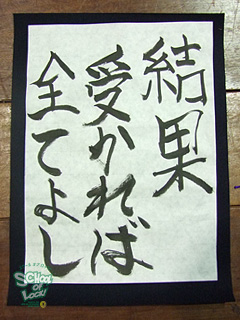 結果
受かれば
全てよし
SCHOOL
OF
LOCK!